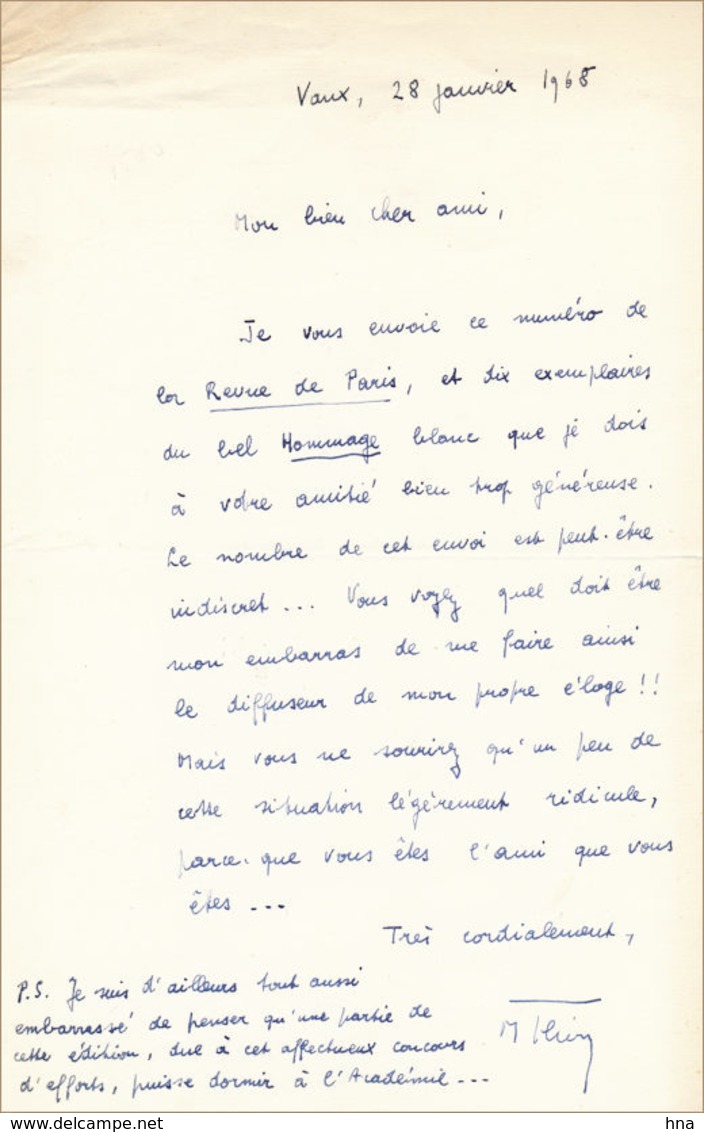 Vaux, 28 janvier 1968
Mon bien cher ami,
Je vous envoie ce numéro de
la Revue de Paris, et dix exemplaires
du bel Hommage blanc que je dois
à votre amitié bien trop généreuse.
Le nombre de cet envoi est peut-être
indiscret... Vous voyez quel doit être
mon embarras de me faire ainsi
le diffuseur de mon propre éloge !!
Mais vous ne sourirez qu'un peu de
cette situation légèrement ridicule,
parce-que vous êtes l'ami que vous
êtes ---
Très cordialement,
P.S. Je suis d'ailleurs tout aussi
embarrassé de penser qu'une partie de
cette édition, due à cet affectueux concours
d'efforts, puisse dormir à l'Académie ---
M
delcampe.net
hna